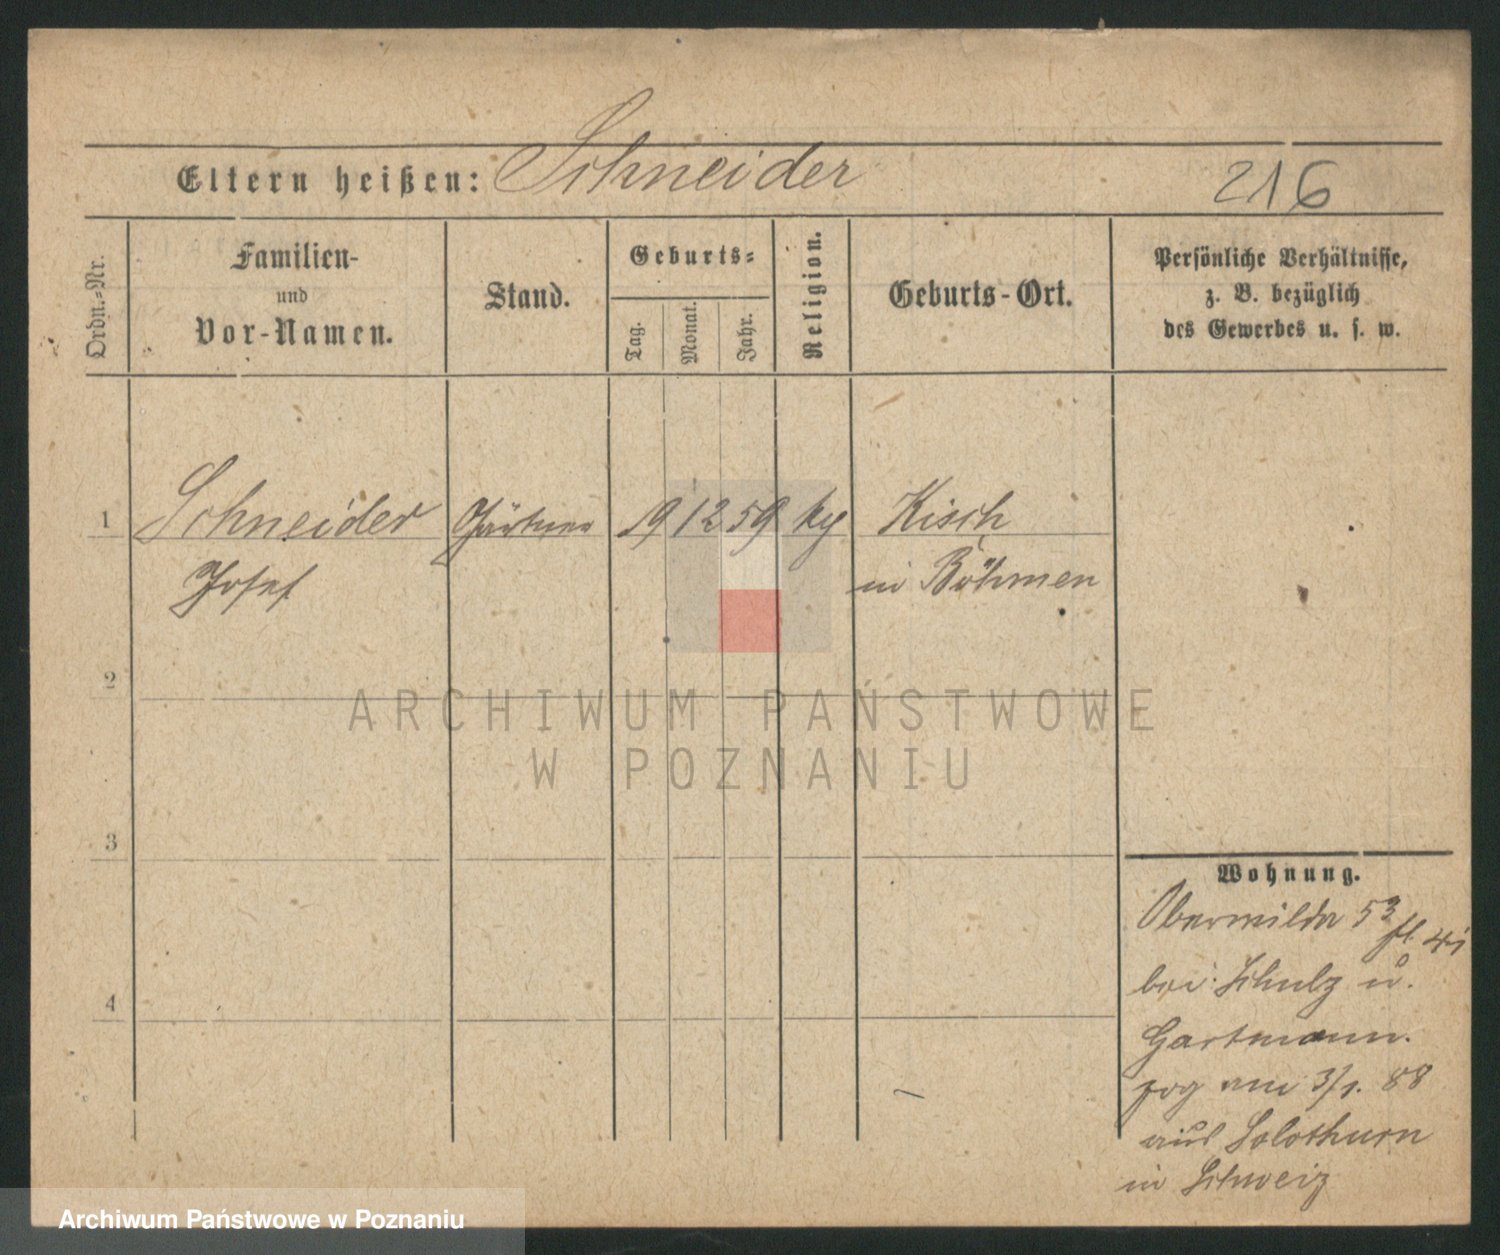 Eltern heißen: Schneider
216
Ordn.=Nr.
Familien-
und
Vor-Namen.
Stand.
Geburts=
Tag.
Monat.
Jahr.
Religion.
Geburts-Ort.
Persönliche Verhältnisse,
z. B. bezüglich
des Gewerbes u. s. w.
1 Schneider Gärtner 19 12 59 kg Kisch
Josef in Böhmen
2
ARCHIWUM PAŃSTWOWE
W POZNANIU
3
Wohnung.
Oberwilda 53
bei Schulz u.
4
Gartmann.
zog am 3/1. 88
aus Solothurn
in Schweiz
Archiwum Państwowe w Poznaniu